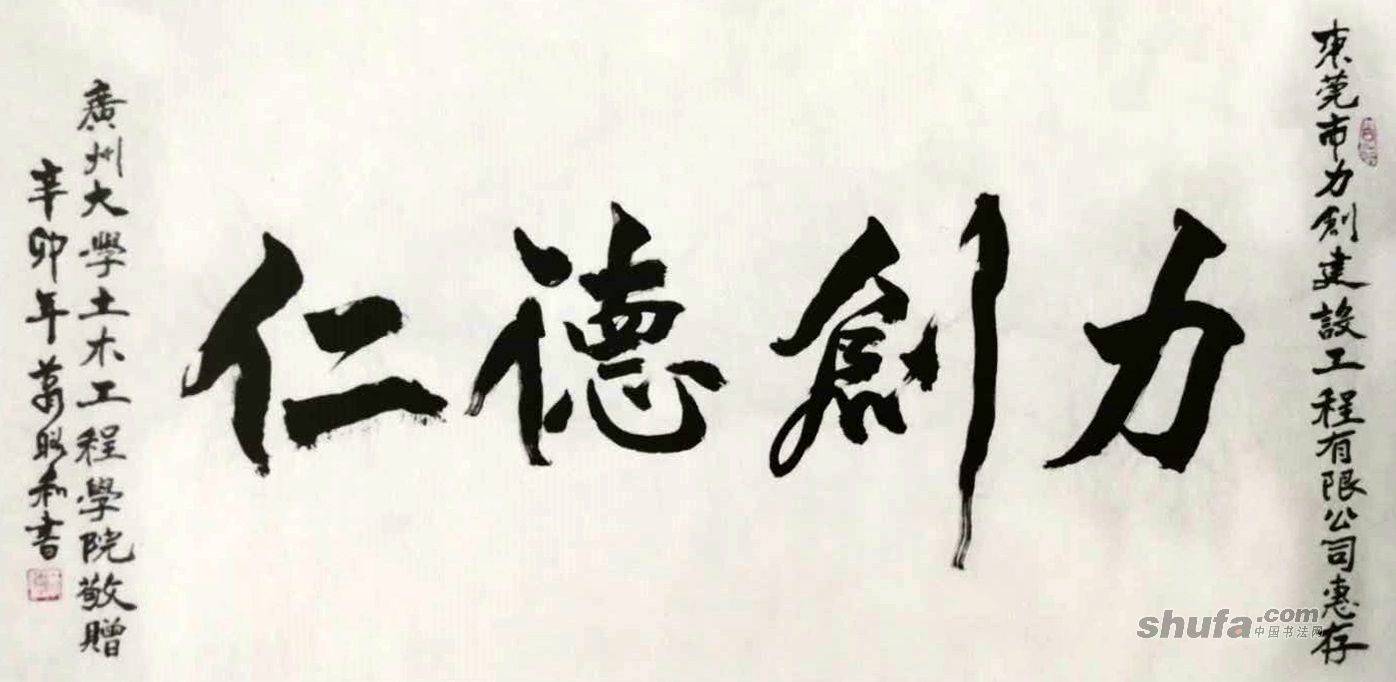 東莞市力創建設工程有限公司惠存
力創德仁
廣州大學土木工程學院敬贈
辛卯年萬照和書
shufa.com
中国书法网